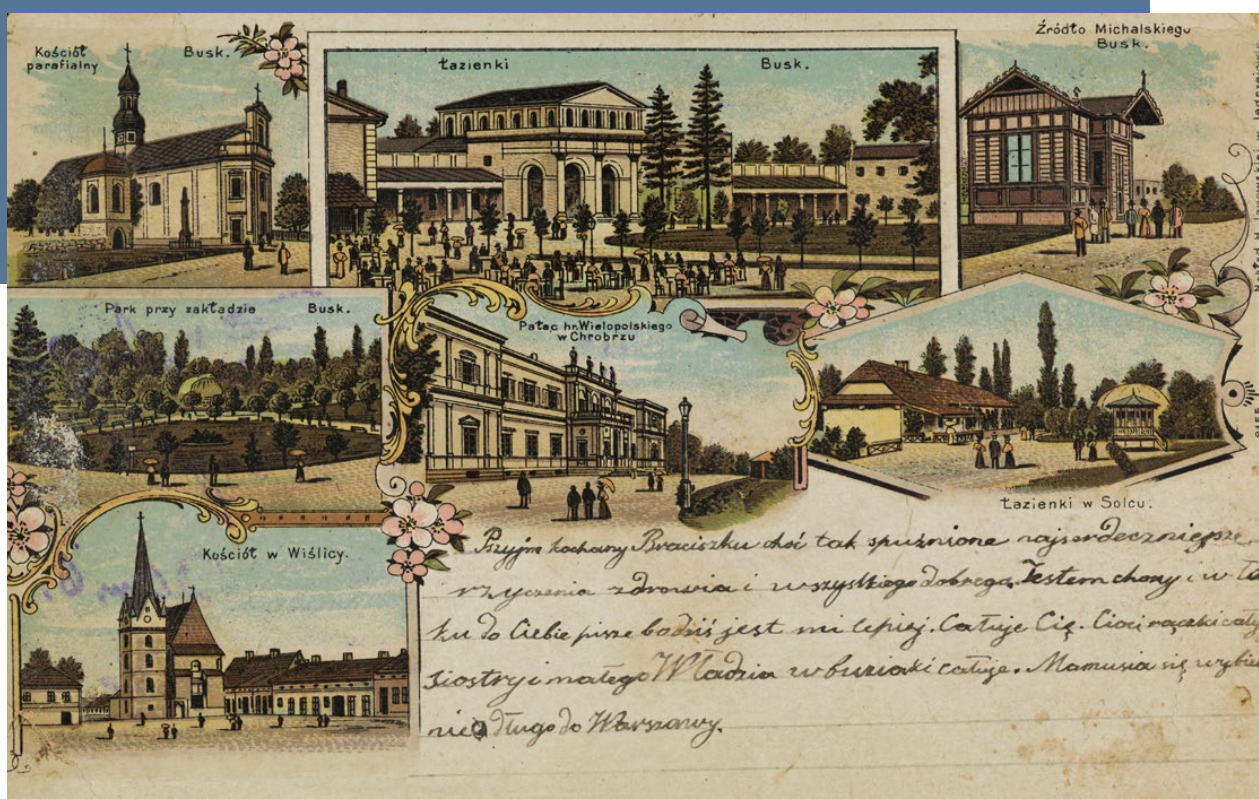 Kościół
parafialny
Busk.
Łazienki
Busk.
Źródło Michalskiego
Busk.
Park przy zakładzie
Busk.
Pałac hr. Wielopolskiego
w Chrobrzu
Łazienki w Solcu.
Kościół w Wiślicy.
Przyjm kochany Braciszku choć tak spuźnione najserdeczniejsze
rzyczenia zdrowia i wszyskiego dobrego. Jestem chory i w łó
ku do Ciebie pisze bo dziś jest mi lepiej. Całuje Cię. Cioci rączki cały
siostry i małego Władzia w buziaki całuje. Mamusia się wybie
nie długo do Warszawy.